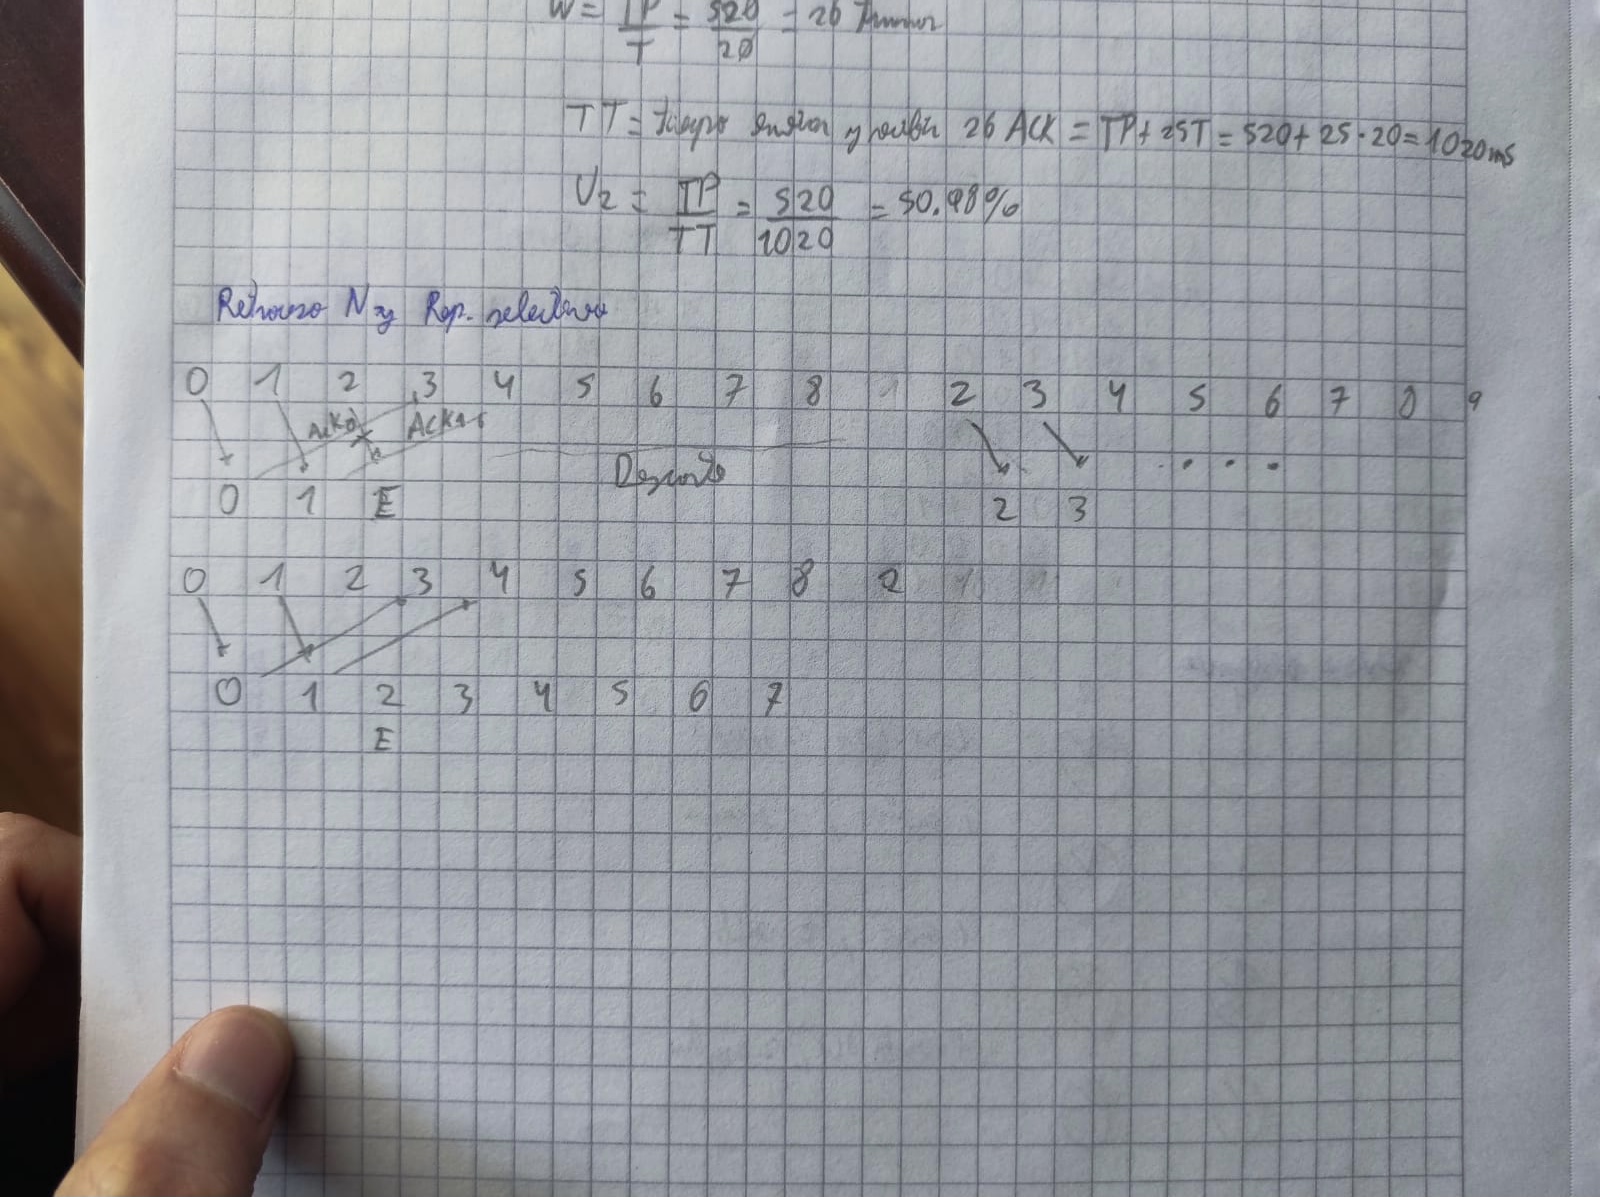 W = TP/T = 520/20 = 26
TT = tiempo enviar y recibir 26 ACK = TP + 25T = 520 + 25·20 = 1020ms
U2 = TP/TT = 520/1020 = 50.98%
Retroceso N y Rep. selectiva
0 1 2 3 4 5 6 7 8 2 3 4 5 6 7 8 9
ACK0 ACK1
Descarte ...
0 1 E 2 3
0 1 2 3 4 5 6 7 8 2
0 1 2 3 4 5 6 7
E